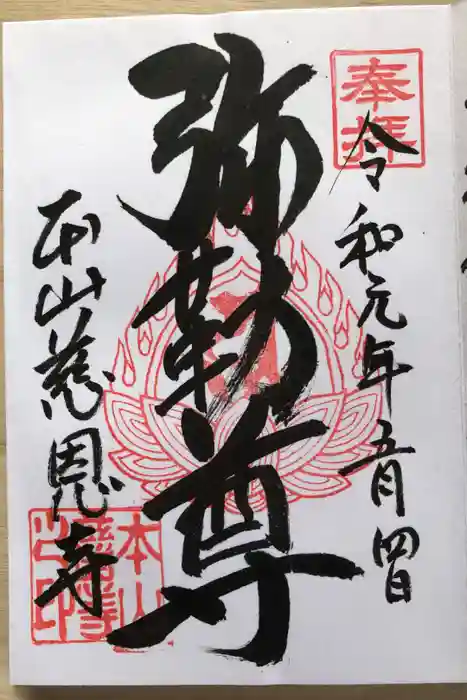 奉拝
令和元年五月四日
弥勒尊
本山慈恩寺
本山慈恩寺之印